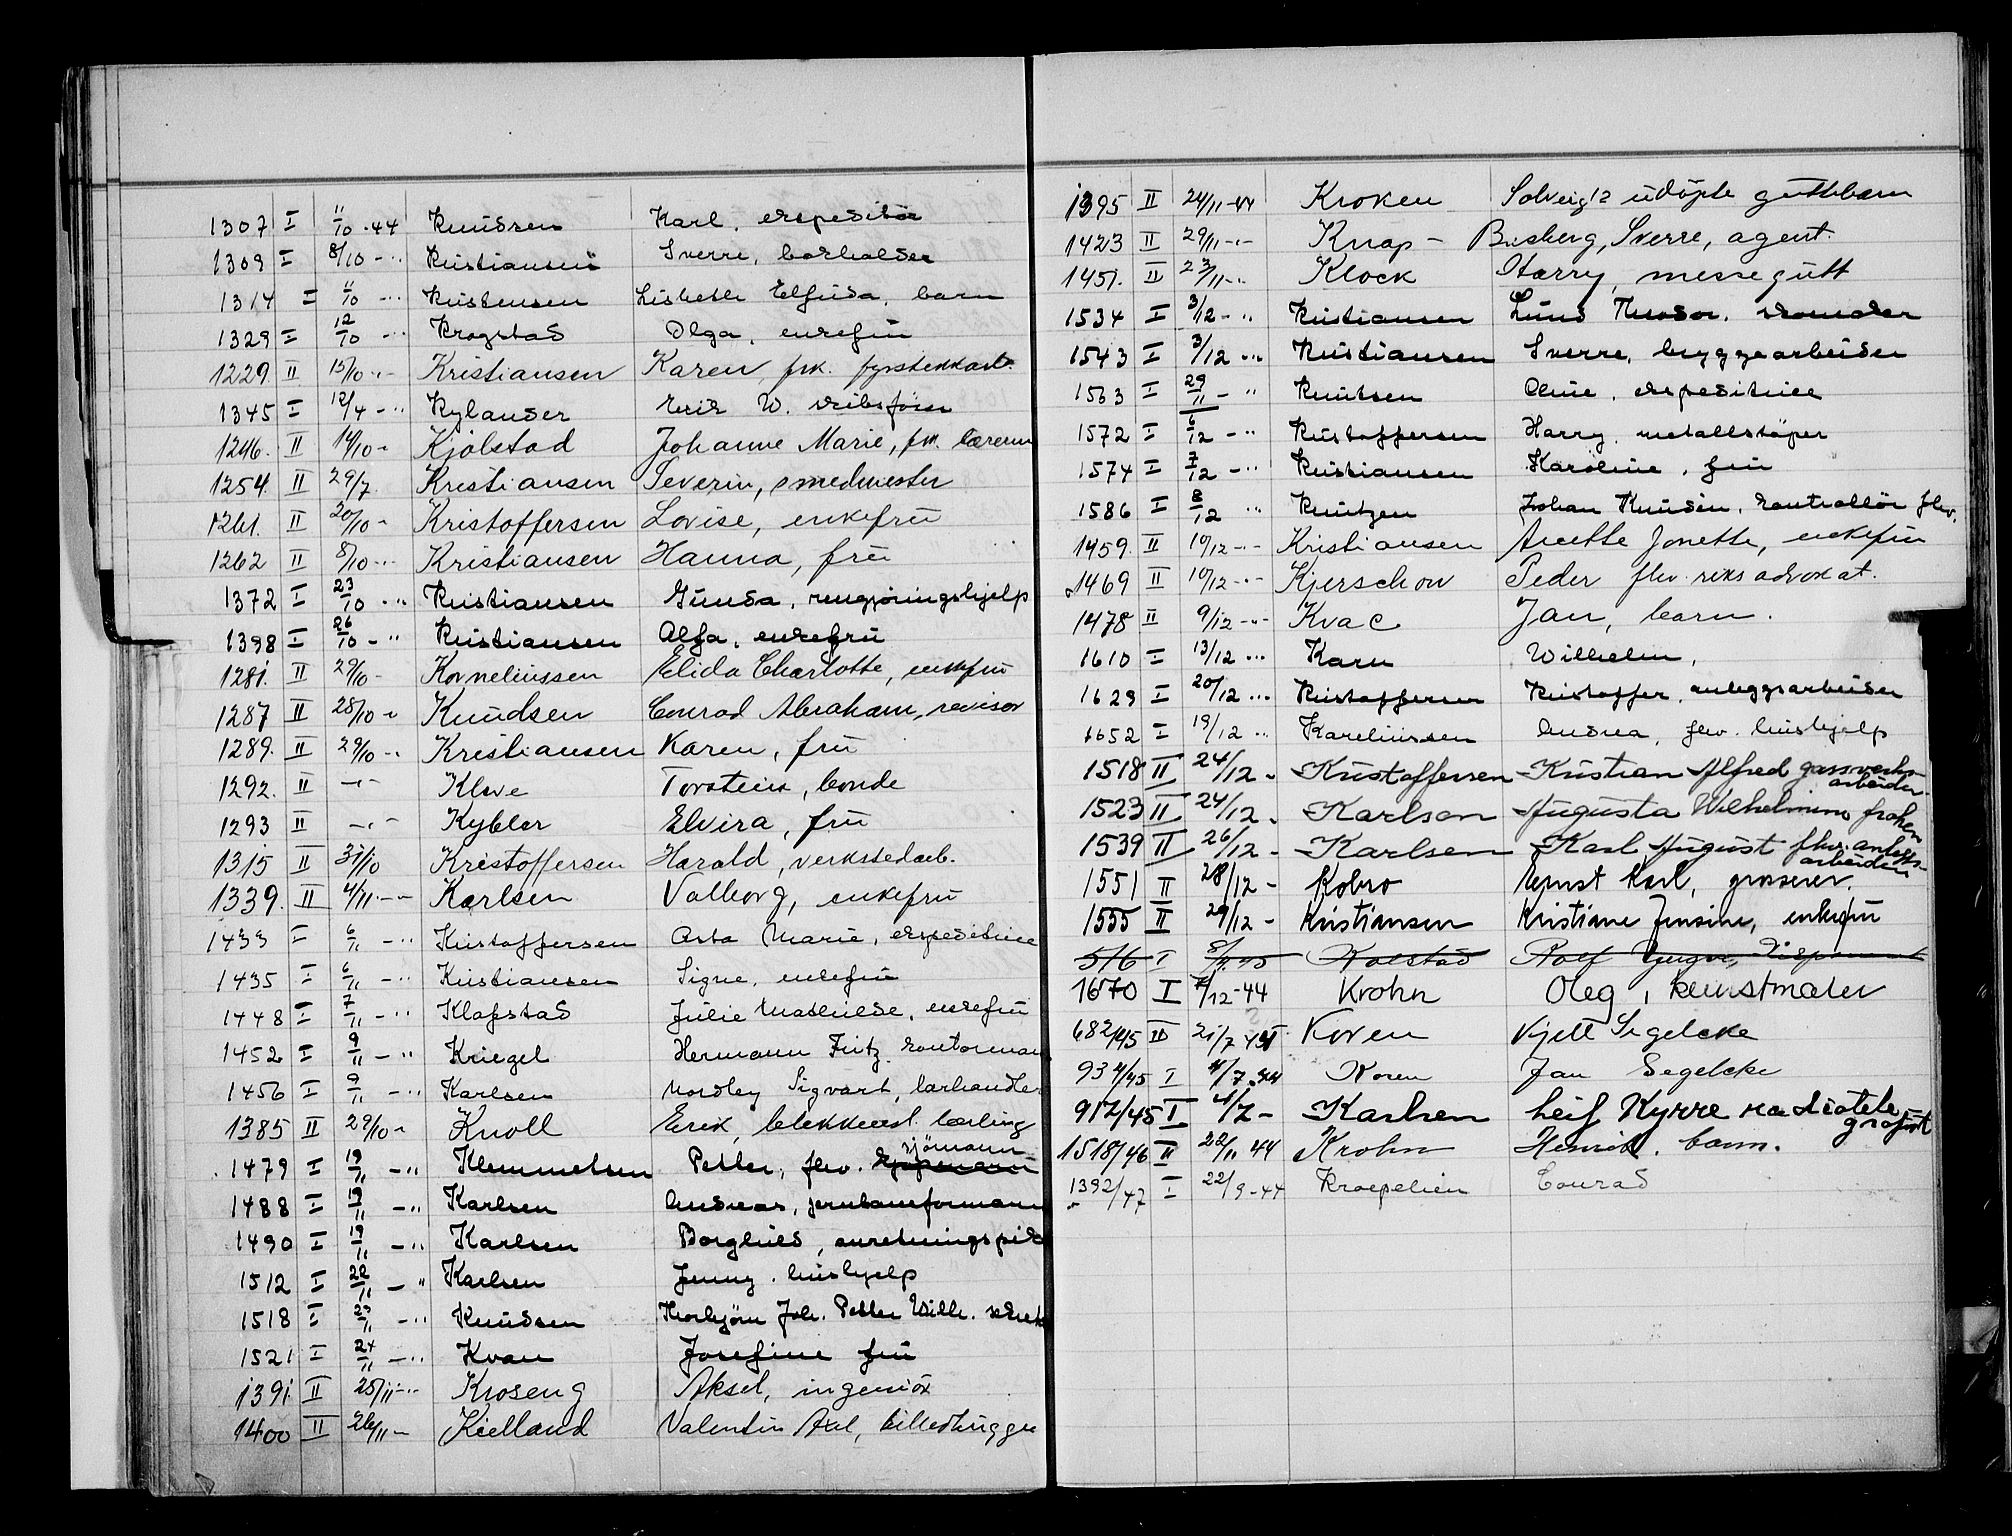 1307 I 11/10 -44 Knudsen Karl, ekspeditør
1309 I 8/10 - " Kristiansen Sverre, barhalder
1314 I 6/10 - " Kristensen Lisbeth Elfrida, barn
1329 I 12/10 - " Krogstad Olga, enkefru
1229 II 15/10 - " Kristiansen Karen, frk. fyrstekkarb.
1345 I 12/4 - " Rylander Erik W. skibsfører
1246. II 14/10 - Kjølstad Johanne Marie, frk. lærerin
1254. II 29/7 Kristiansen Severin, smedmester
1261. II 20/10 - Kristoffersen Lovise, enkefru
1262 II 8/10 - " Kristiansen Hanna, fru
1372 I 23/10 - " Kristiansen Gunda, rengjøringshjelp
1398 I 26/10 - " Kristiansen Alfa, enkefru
1281. II 29/10 - Korneliussen Elida Charlotte, enkefru
1287 II 28/10 - " Knudsen Conrad Abraham, revisor
1289. II 29/10 - " Kristiansen Karen, fru
1292. II - " - Kleve Torstein, bonde
1293 II - " - Kybler Elvira, fru
1315 II 31/10 Kristoffersen Harald, verkstedarb.
1339. II 4/11 - " - Karlsen Valborg, enkefru
1433 I 6/11 - " Kristoffersen Asta Marie, ekspeditrice
1435 I 6/11 - " Kristiansen Signe, enkefru
1448 I 7/11 - " Klafstad Julie Mathilde, enkefru
1452 I 9/11 - " Kriegel Hermann Fritz, kontorman
1456 I 9/11 - " Karlsen Nordley Sigvart,
1385 II 29/10 - " Knoll Erik, blekkensl. lærling
sjömann
1479 I 19/11 - " Klemmetsen Petter, fhv.
1488 I 19/11 - " Karlsen Andreas, jernbaneformann
1490 I 19/11 - " Karlsen Borghild, anretningspike
1512 I 22/11 - " Karlsen Jenny, hushjelp
1518 I 23/11 - " Knudsen Thorbjörn Joh. Petter Wilh.
1521 I 24/11 - " Kvan Josefine fru
1391. II 25/11 - " Kroseng Aksel, ingeniör
1400 II 26/11 - Kielland Valentin Axel, billedhugger
1395 II 24/11 -44 Kroken Solveigs udöpte guttebarn
1423 II 29/11 - " - Knap - Busberg, Sverre, agent.
1451. II 23/11 - " Klock Harry, messegutt
1534 I 3/12 - " Kristiansen Lund Theodor, skomaker
1543 I 3/12 - " Kristiansen Sverre, bryggearbeider
1563 I 29/11 - " Knutsen Aline, ekspeditrice
1572 I 6/12 - " Kristoffersen Harry, metallstöper
1574 I 7/12 - " Kristiansen Karoline, fru
1586 I 8/12 " Knutzen Johan Knudsen, kontrollör fhv.
1459. II 10/12 - " - Kristiansen Anette Jonette, enkefru
1469 II 10/12 - " - Kjerschow Peder fhv. riksadvokat.
1478 II 9/12 - " - Kvac Jan, barn.
1610 I 13/12 " Karn Wilhelm,
1629 I 20/12 " Kristoffersen Kristoffer, anleggsarbeider
1652 I 19/12 " Kareliussen Andrea, fhv. hushjelp
1518 II 24/12 - Kristoffersen Kristian Alfred gassverks-
arbeider
1523 II 24/12 - Karlsen Augusta Wilhelmine frøken
1539 II 26/12 - Karlsen Karl August fhv. anleggs-
arbeider
1551 II 28/12 - Kobro Ernst Karl, grosserer.
1555 II 29/12 - Kristiansen Kristiane Jensine, enkefru
516 I 8/4 45 Kolstad Rolf
1670 I 7/12 -44 Krohn Oleg, kunstmaler
682/45 II 21/7 44 Koren Kjell Segelcke
934/45 I 4/7 .44 Koren Jan Segelcke
912/45 I 4/7 - Karlsen Leif Kyrre radiotele-
grafist
1518/46 II 22/11 44 Krohn Henrik, barn.
1392/47 I 22/9 -44 Kroepelien Conrad